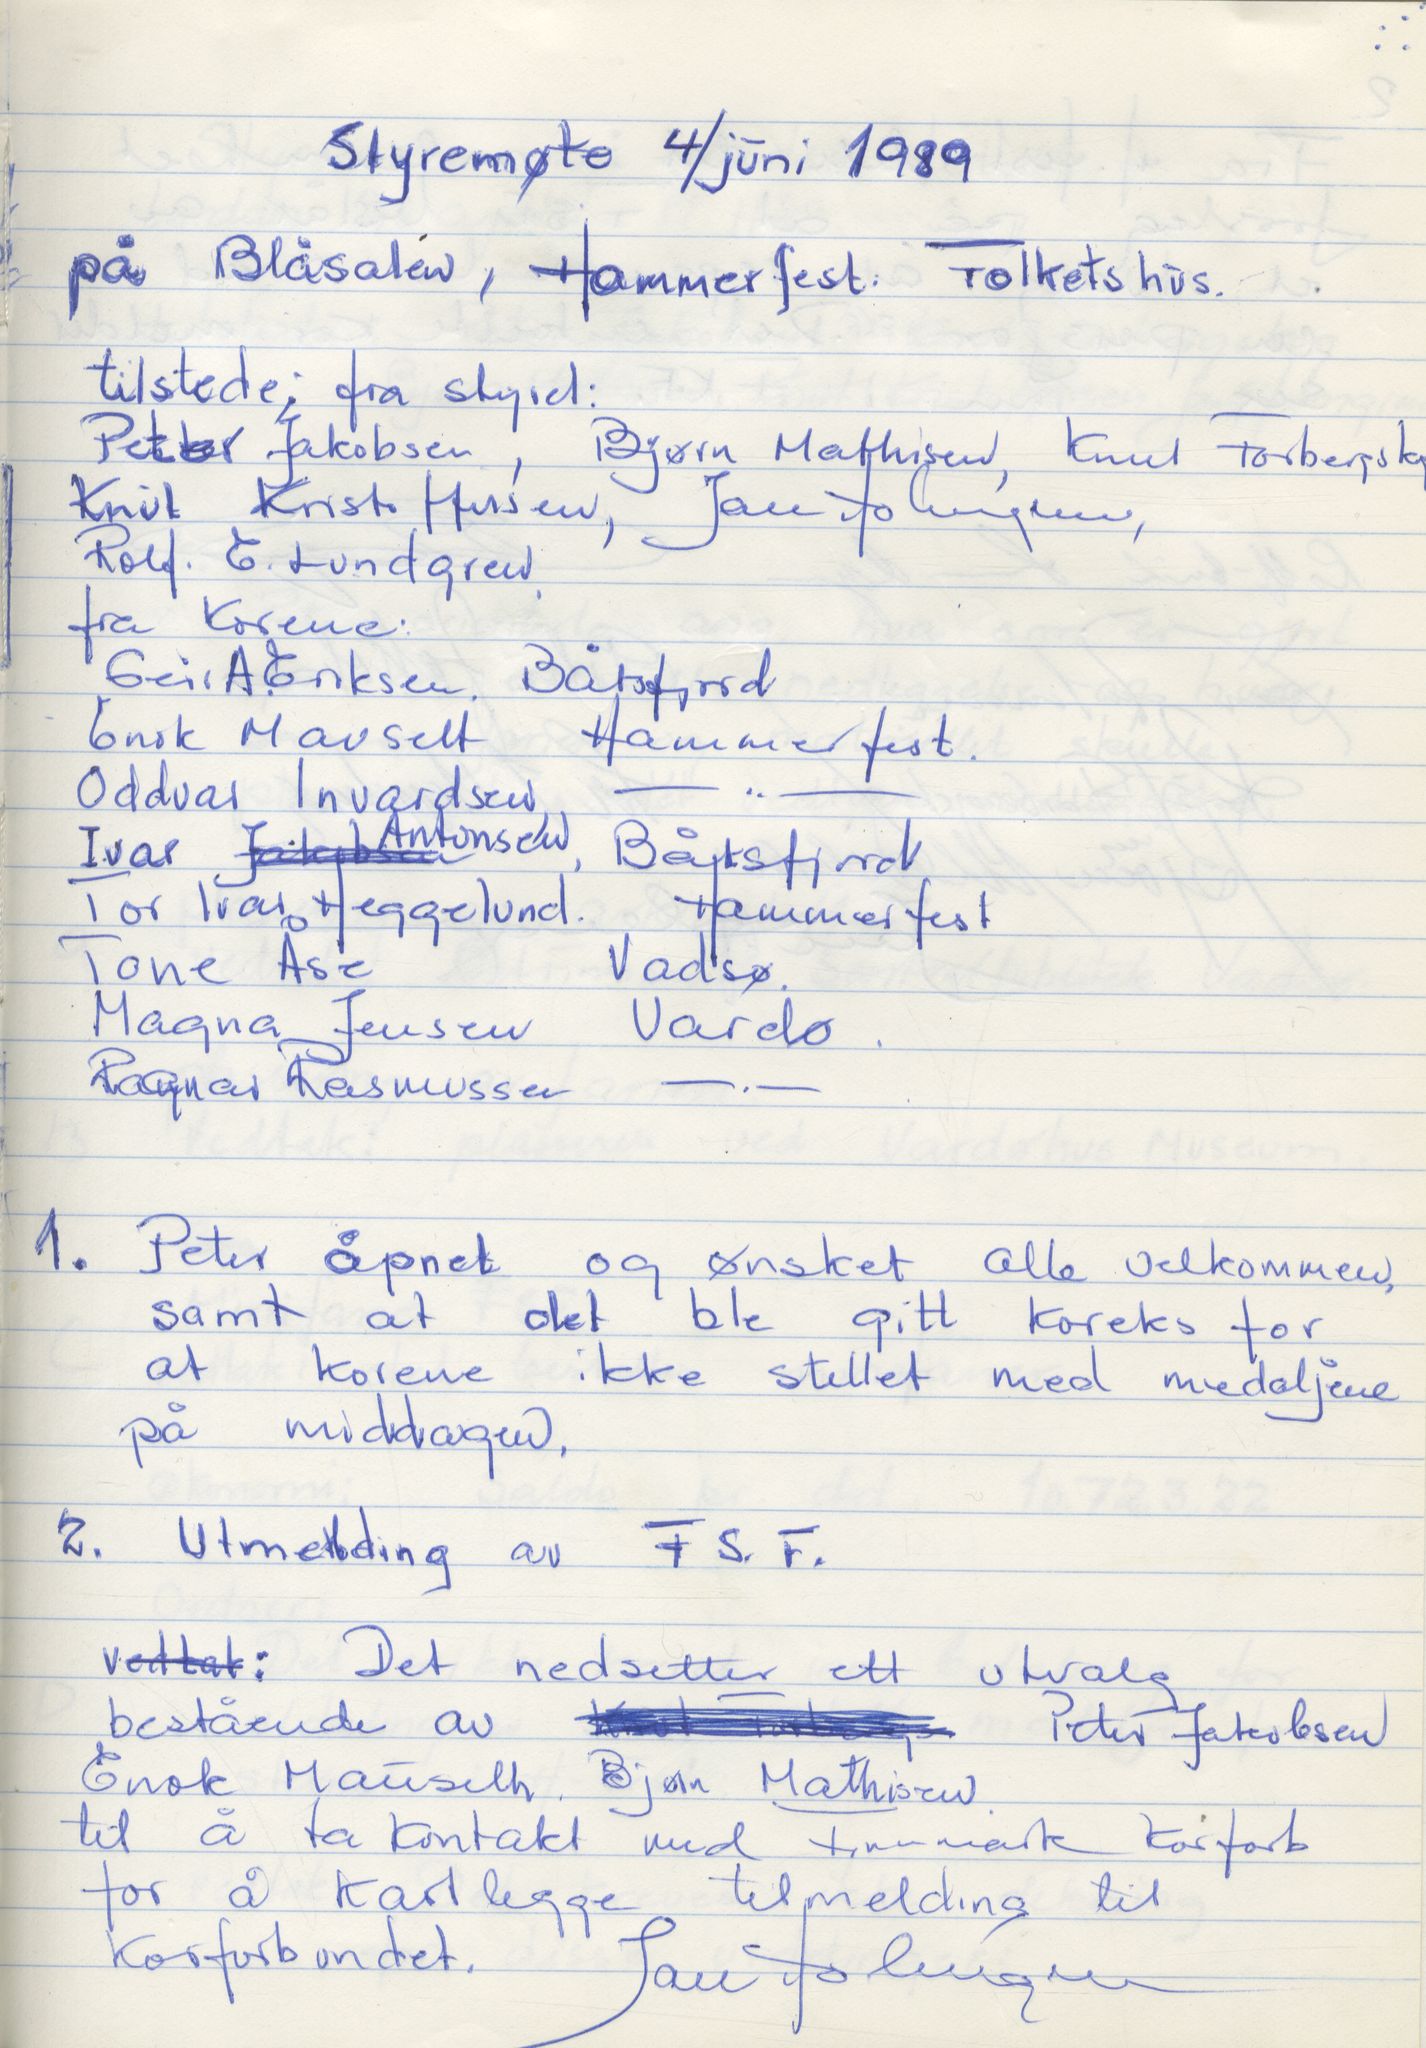 Styremøte 4/juni 1989
på Blåsalen, Hammerfest. Folketshus.
tilstede: fra styret:
Peter Jakobsen, Bjørn Mathisen, Knut Torbergsk
Knut Kristoffersen, Jan
Rolf. E. Lundgren.
fra Korene:
Geir A Eriksen. Båtsfjord
Enok Mauseth Hammerfest.
Oddvar Invardsen, — ,, —
Ivar Jakobsen Antonsen, Båtsfjord
Tor Ivar Heggelund. Hammerfest
Tone Åse Vadsø.
Magna Jensen Vardø.
Ragnar Rasmussen — . —
1. Peter åpnet og ønsket alle velkommen,
samt at det ble gitt koreks for
at korene ikke stillet med medaljene
på middagen.
2. Utmelding av F S. F.
vedtak: Det nedsetter ett utvalg
bestående av Peter Jakobsen
Enok Mauseth, Bjørn Mathisen.
til å ta kontakt med Finnmark Korforb
for å kartlegge tilmelding til
Korforbundet. Jan